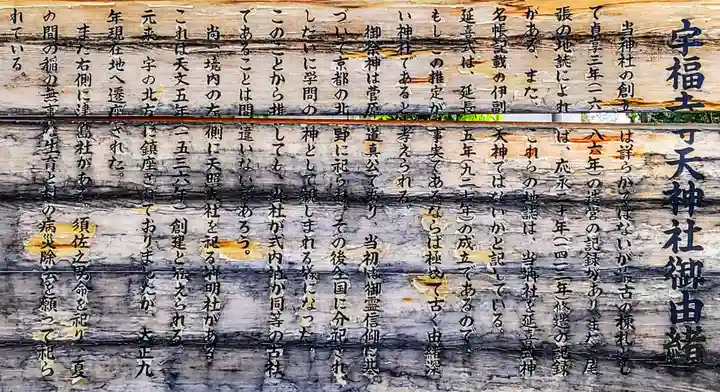 宇福寺天神社御由緒
当神社の創立は詳らかではないが最古の棟札とし
て貞享三年(一六八六年)の造営の記録があり、また「尾
張の地誌によれば、応永二十年(一四一三年)修造の記録
がある。また、これらの地誌は、当神社を延喜式神
名帳記載の伊副天神ではないかと記している。
延喜式は、延長五年(九二七年)の成立であるので、
もしこの推定が事実であるならば極めて古く由緒深
い神社であると考えられる。
御祭神は菅原道真公であり、当初は御霊信仰に基
づいて京都の北野に祀られ、その後全国に分祀され
しだいに学問の神として親しまれる様になった。
このことから推しても、当社が式内社か同等の古社
であることは間違いないであろう。
尚、境内の左側に天照大社を祀る神明社がある。
これは天文五年(一五三六年)創建と伝えられる。
元来、字の北方に鎮座されておりましたが、大正九
年現在地へ遷座された。
また右側に津島社がある。須佐之男命を祀り、夏
の間の稲の無事な生育と村の病災除去を願って祀ら
れている。